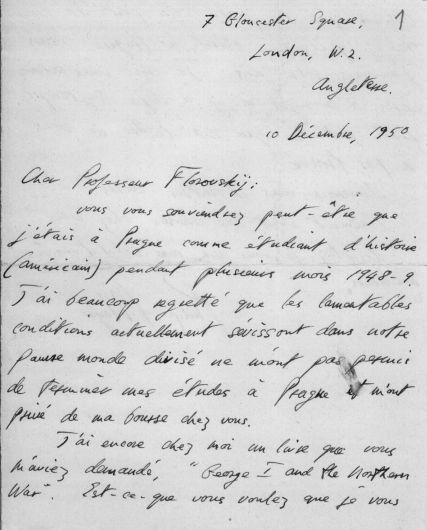 7 Gloucester Square,
1
London, W.2.
Angleterre.
10 Décembre, 1950
Cher Professeur Florovskij:
vous vous souviendrez peut-être que
j'étais à Prague comme étudiant d'histoire
(américain) pendant plusieurs mois 1948-9.
J'ai beaucoup regretté que les lamentables
conditions actuellement sévissant dans notre
pauvre monde divisé ne m'ont pas permis
de terminer mes études à Prague et m'ont
privé de ma bourse chez vous.
J'ai encore chez moi un livre que vous
m'aviez demandé, "George I and the Northern
War". Est-ce-que vous voulez que je vous